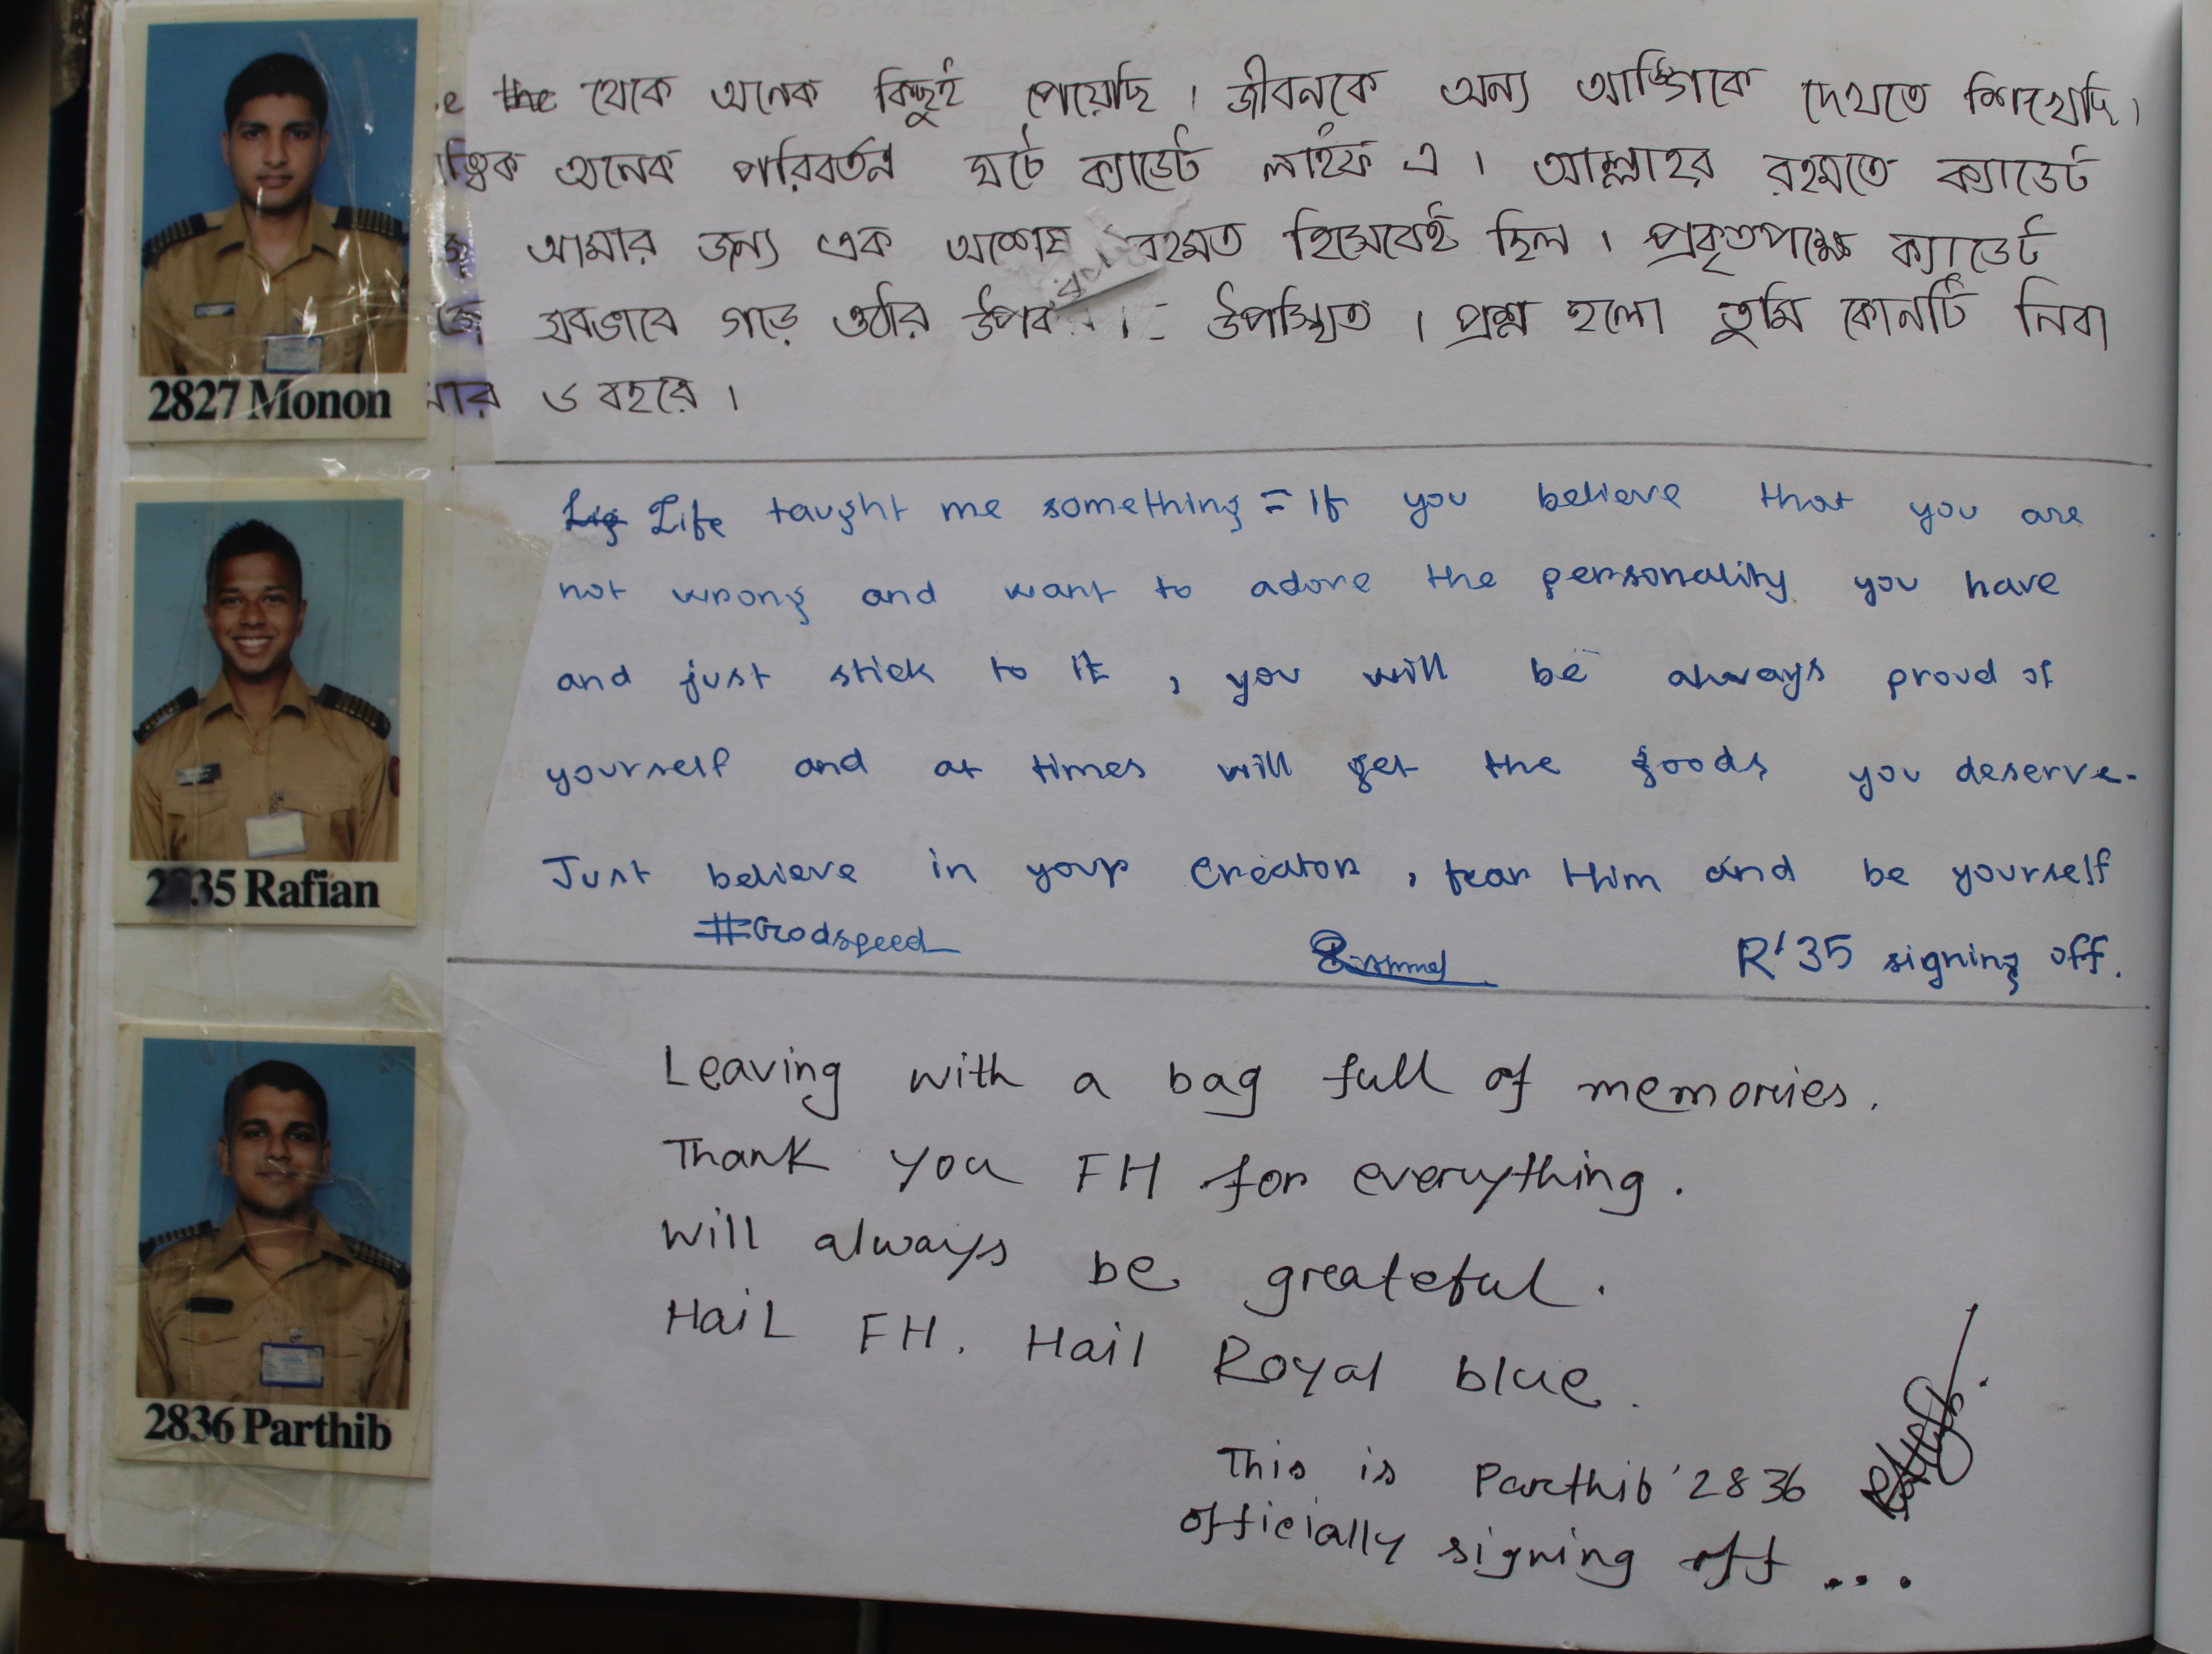 the থেকে অনেক কিছুই পেয়েছি। জীবনকে অন্য আঙ্গিকে দেখতে শিখেছি।
অনেক পরিবর্তন ঘটে ক্যাডেট লাইফ এ। আল্লাহর রহমতে ক্যাডেট
আমার জন্য এক অশেষ রহমত হিসেবেই ছিল। প্রকৃতপক্ষে ক্যাডেট
সবভাবে গড়ে ওঠার উপস্থিত। প্রশ্ন হলো তুমি কোনটি নিবা
৬ বছরে।
2827 Monon
Life taught me something = If you believe that you are
not wrong and want to adore the personality you have
and just stick to it, you will be always proud of
yourself and at times will get the goods you deserve.
Just believe in your Creator, fear Him and be yourself
35 Rafian
#Godspeed
R'35 signing off.
Leaving with a bag full of memories.
Thank you FH for everything.
Will always be greateful.
Hail FH. Hail Royal blue.
2836 Parthib
This is Parthib '2836
officially signing off ...